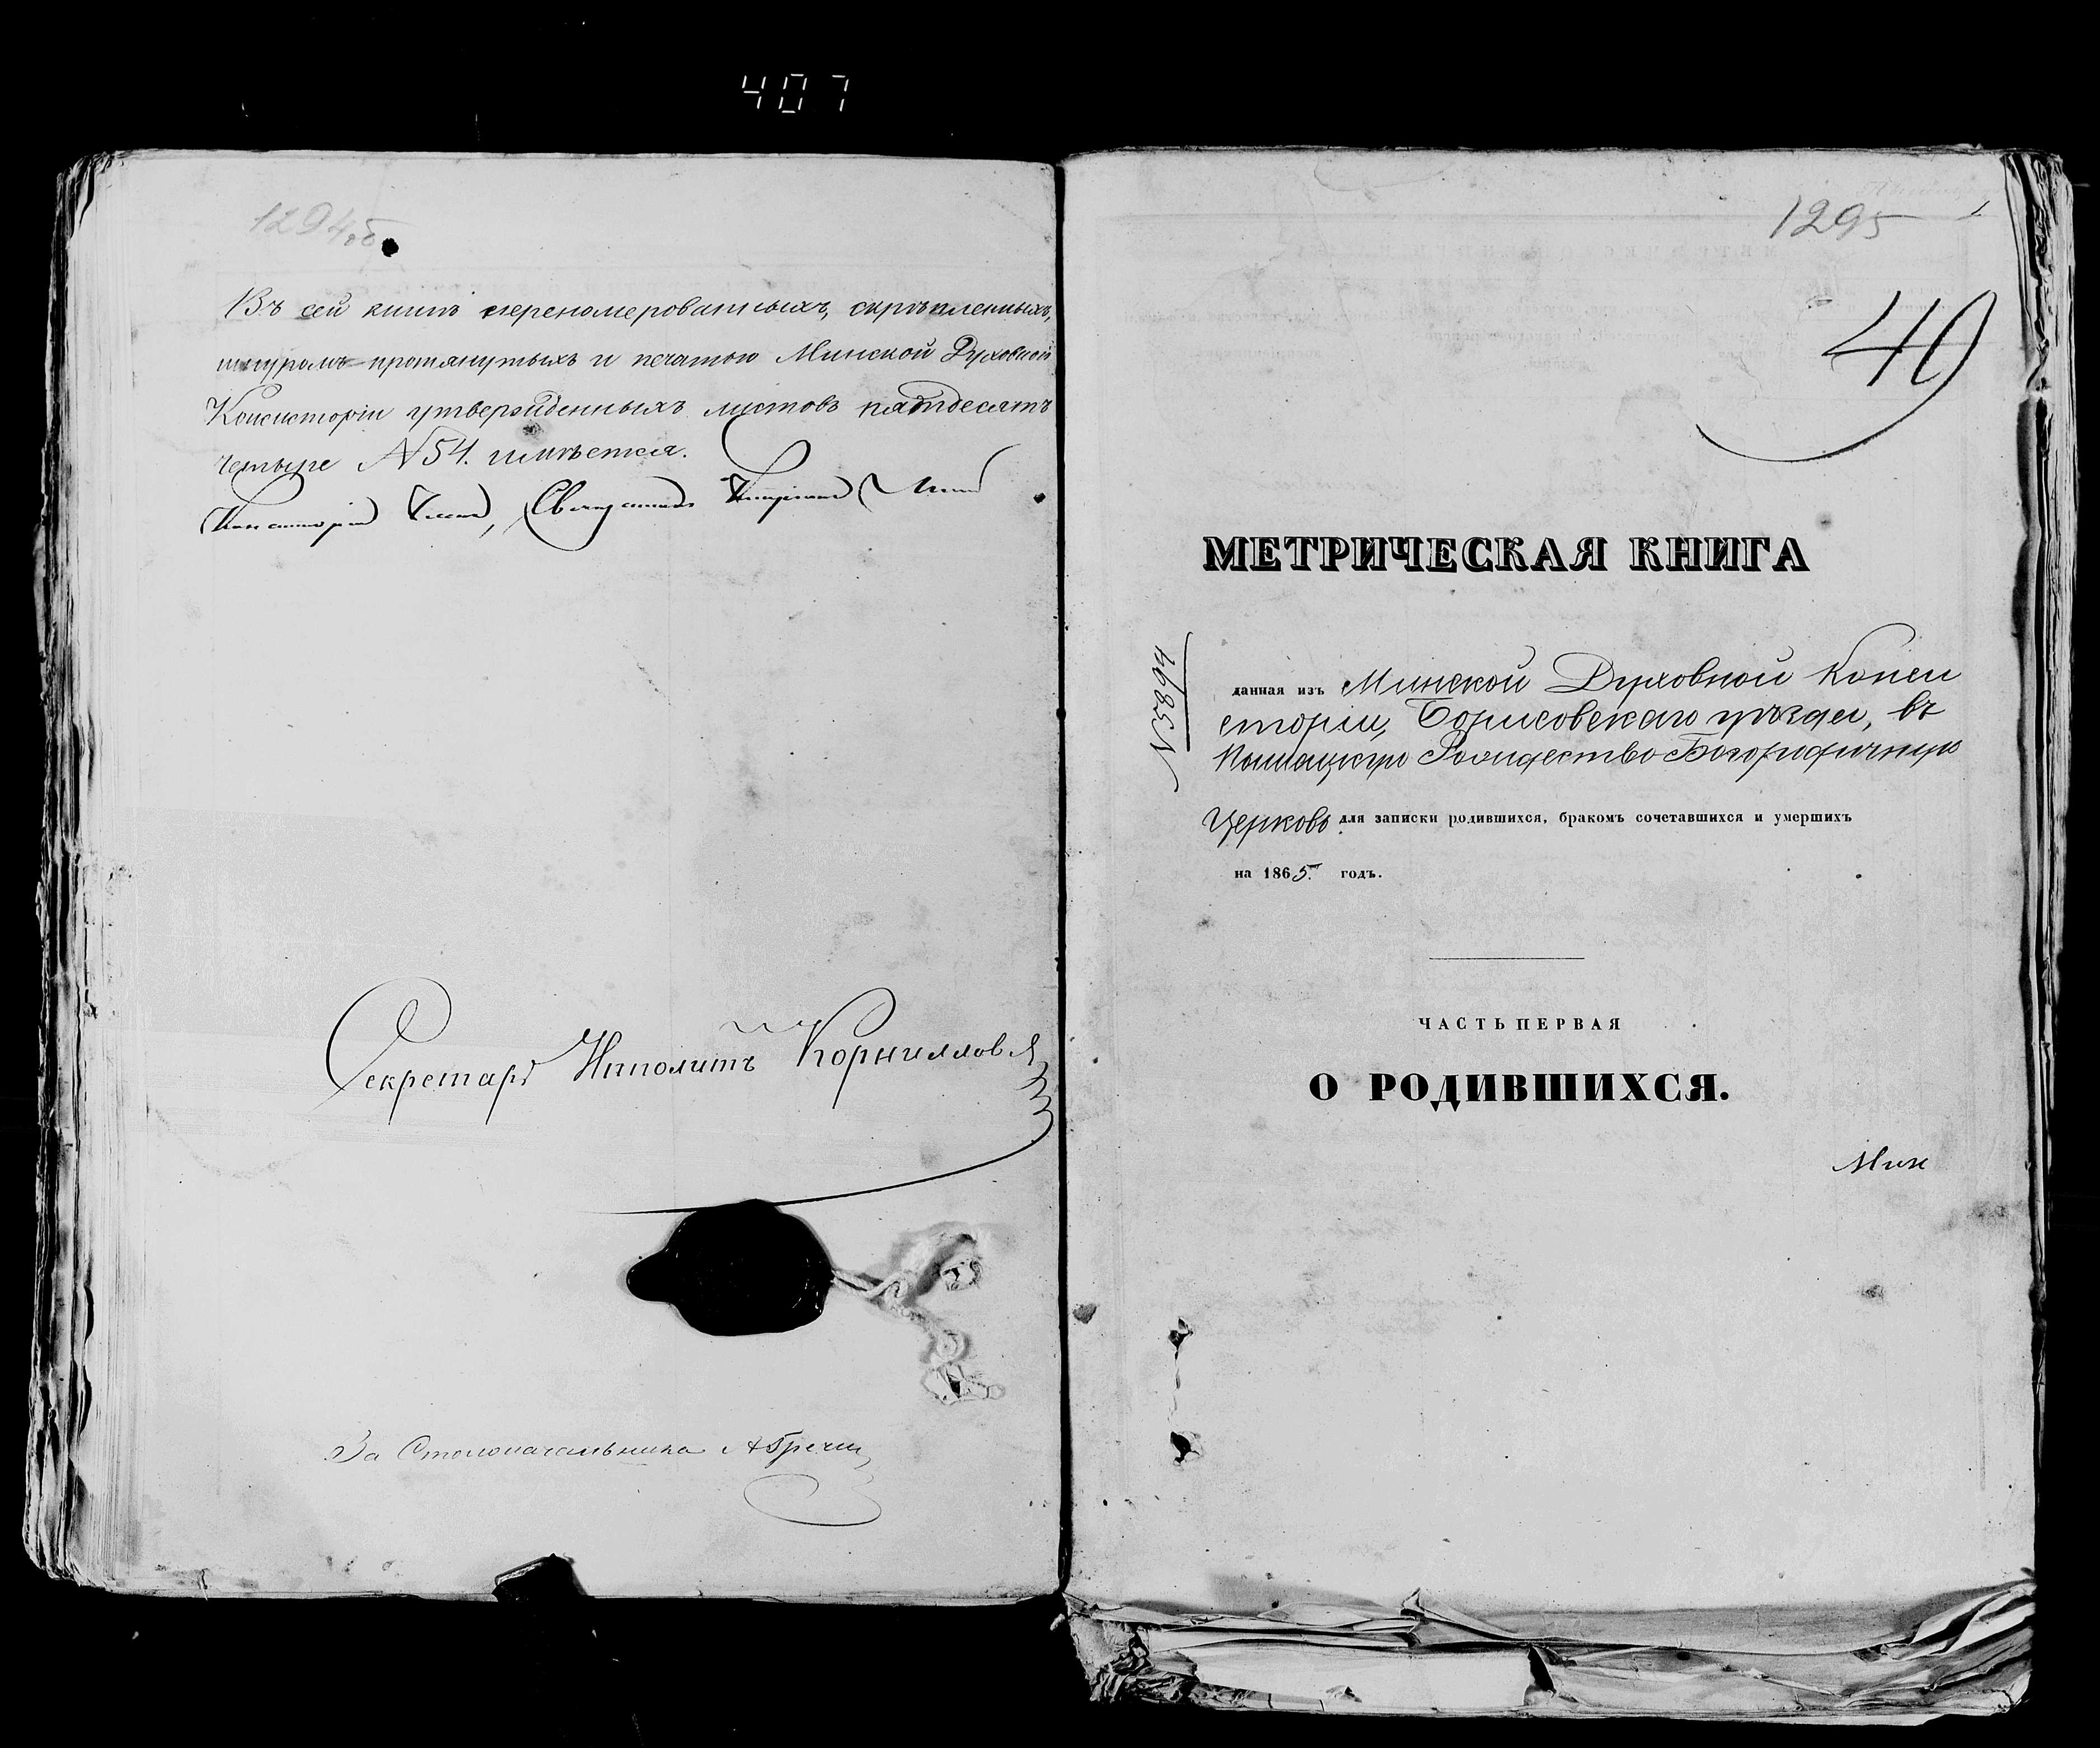 407
1294об
Въ сей книгѣ перенумерованныхъ, скрѣпленныхъ,
шнуромъ протянутыхъ и печатью Минской Духовной
Консисторіи утвержденныхъ листовъ пятьдесятъ
четыре N 54. имѣется.
Консисторіи Членъ, Священникъ
Секретарь Ипполитъ Корнилловъ
За Столоначальника
1295
40
МЕТРИЧЕСКАЯ КНИГА
N 5894
данная изъ Минской Духовной Конси
сторіи, Борисовскаго уѣзда, въ
Рождество-Богородичную
Церковь для записки родившихся, бракомъ сочетавшихся и умершихъ
на 1865 годъ.
ЧАСТЬ ПЕРВАЯ
О РОДИВШИХСЯ.
Мин